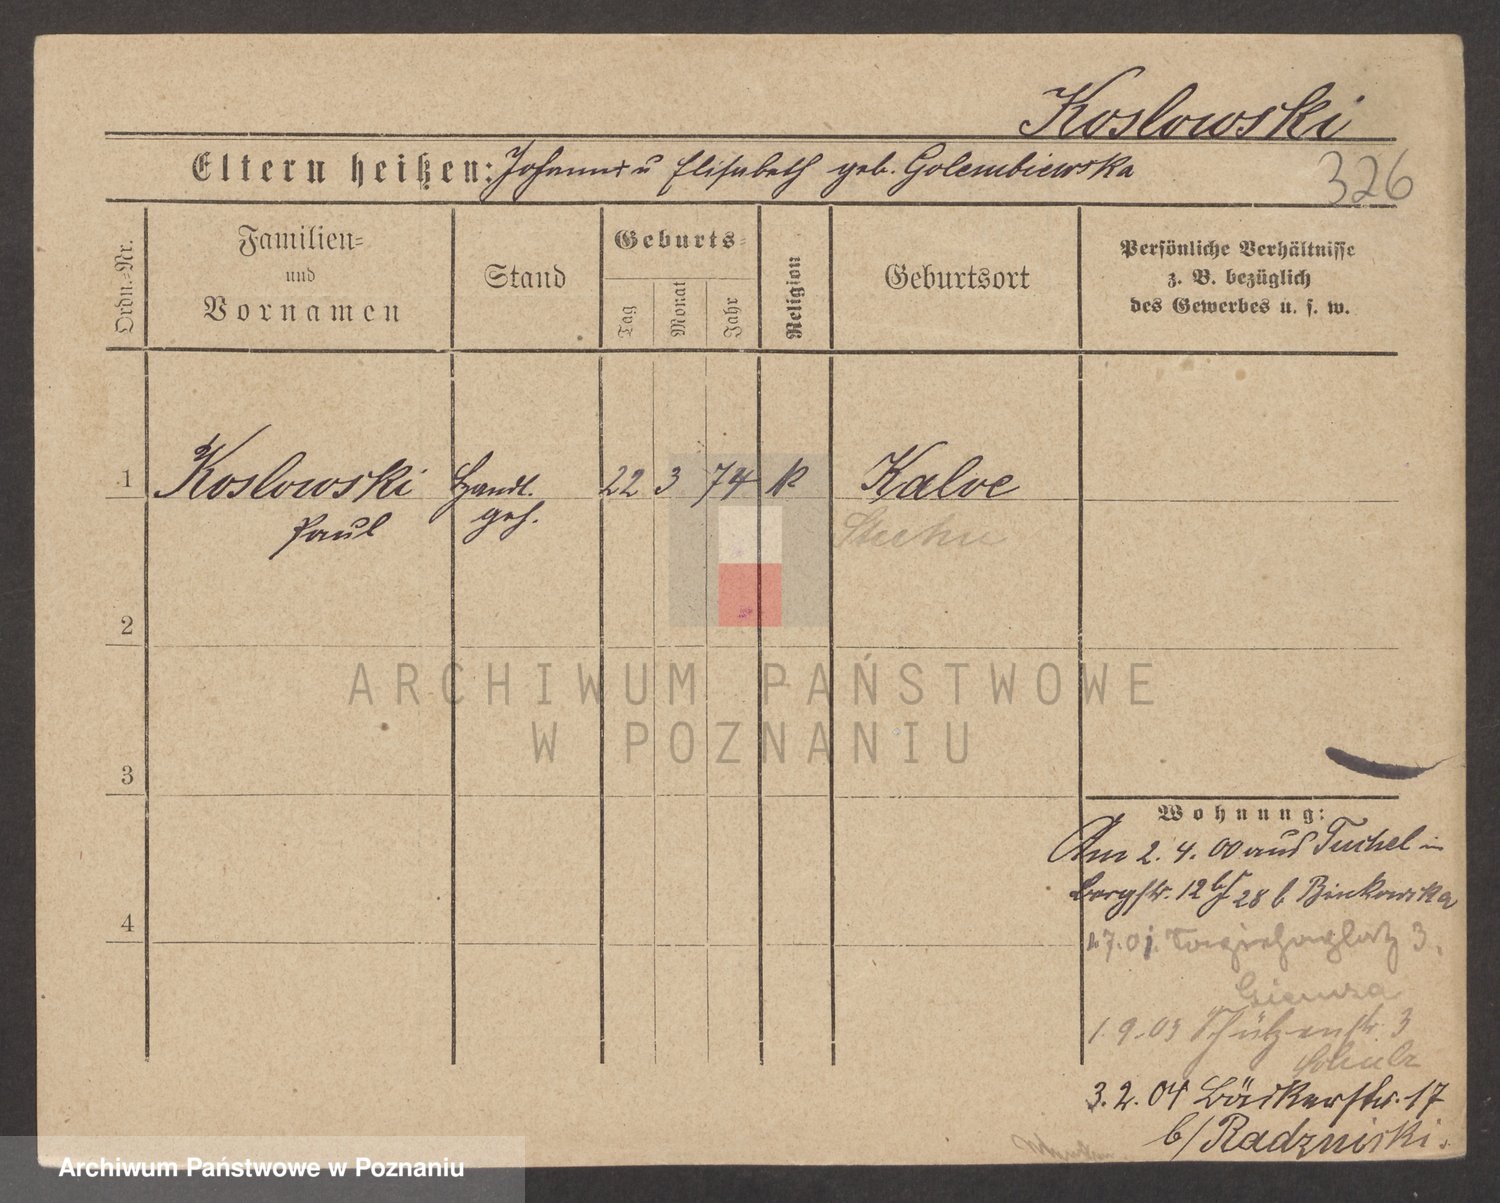 Koslowski
Eltern heißen: Johann u Elisabeth geb. Golembiewska
326
Ordn.-Nr.
Familien-
und
Vornamen
Stand
Geburts-
Tag
Monat
Jahr
Religion
Geburtsort
Persönliche Verhältnisse
z. B. bezüglich
des Gewerbes u. s. w.
1 Koslowski Handl. 22 3 74 k Kalve
Paul geh. Stuhm
2
3
4
ARCHIWUM PAŃSTWOWE
W POZNANIU
Wohnung:
Am 2. 4. 00 aus Tuchel in
Bergstr. 12 b/ 28 b Binkowska
1.7.01. Sapiehaplatz 3.
1.9.03 Schützenstr. 3
Schulz
3.2.04 Bäckerstr. 17
b/ Radzniski.
Archiwum Państwowe w Poznaniu